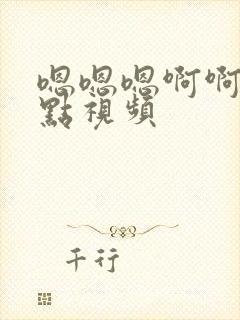 嗯嗯嗯啊啊
點視頻
千行